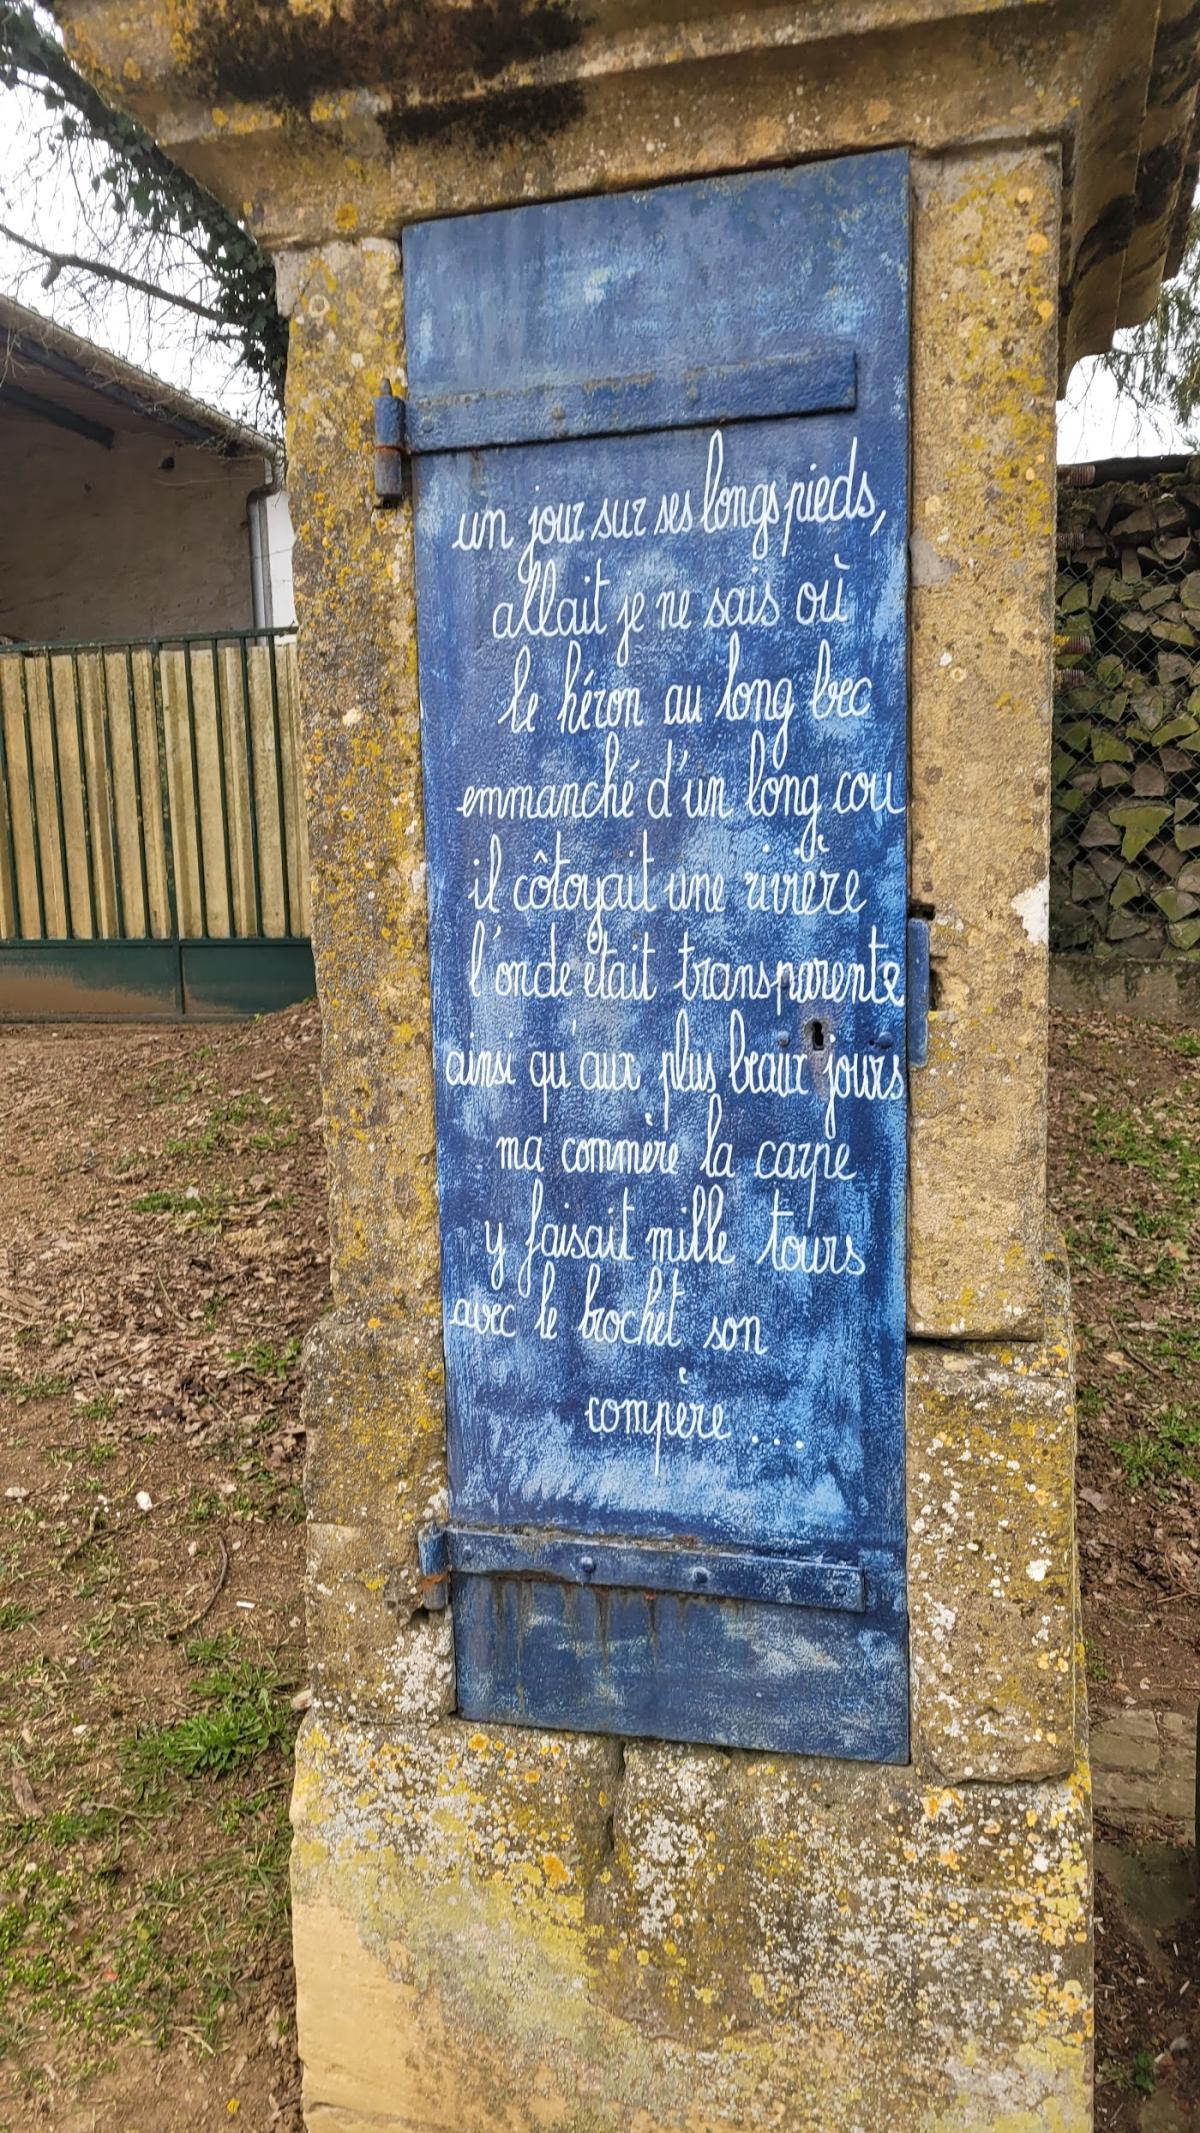 un jour sur ses longs pieds,
allait je ne sais où
le héron au long bec
emmanché d'un long cou
il côtoyait une rivière
l'onde était transparente
ainsi qu'aux plus beaux jours
ma commère la carpe
y faisait mille tours
avec le brochet son
compère ...